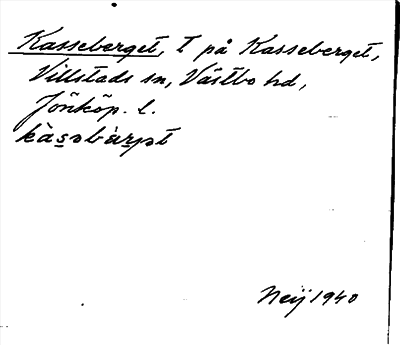 Kasseberget, T på Kasseberget,
Villstads sn, Västbo hd,
Jönköp. l.
kàsəbàrjət
Neij 1940